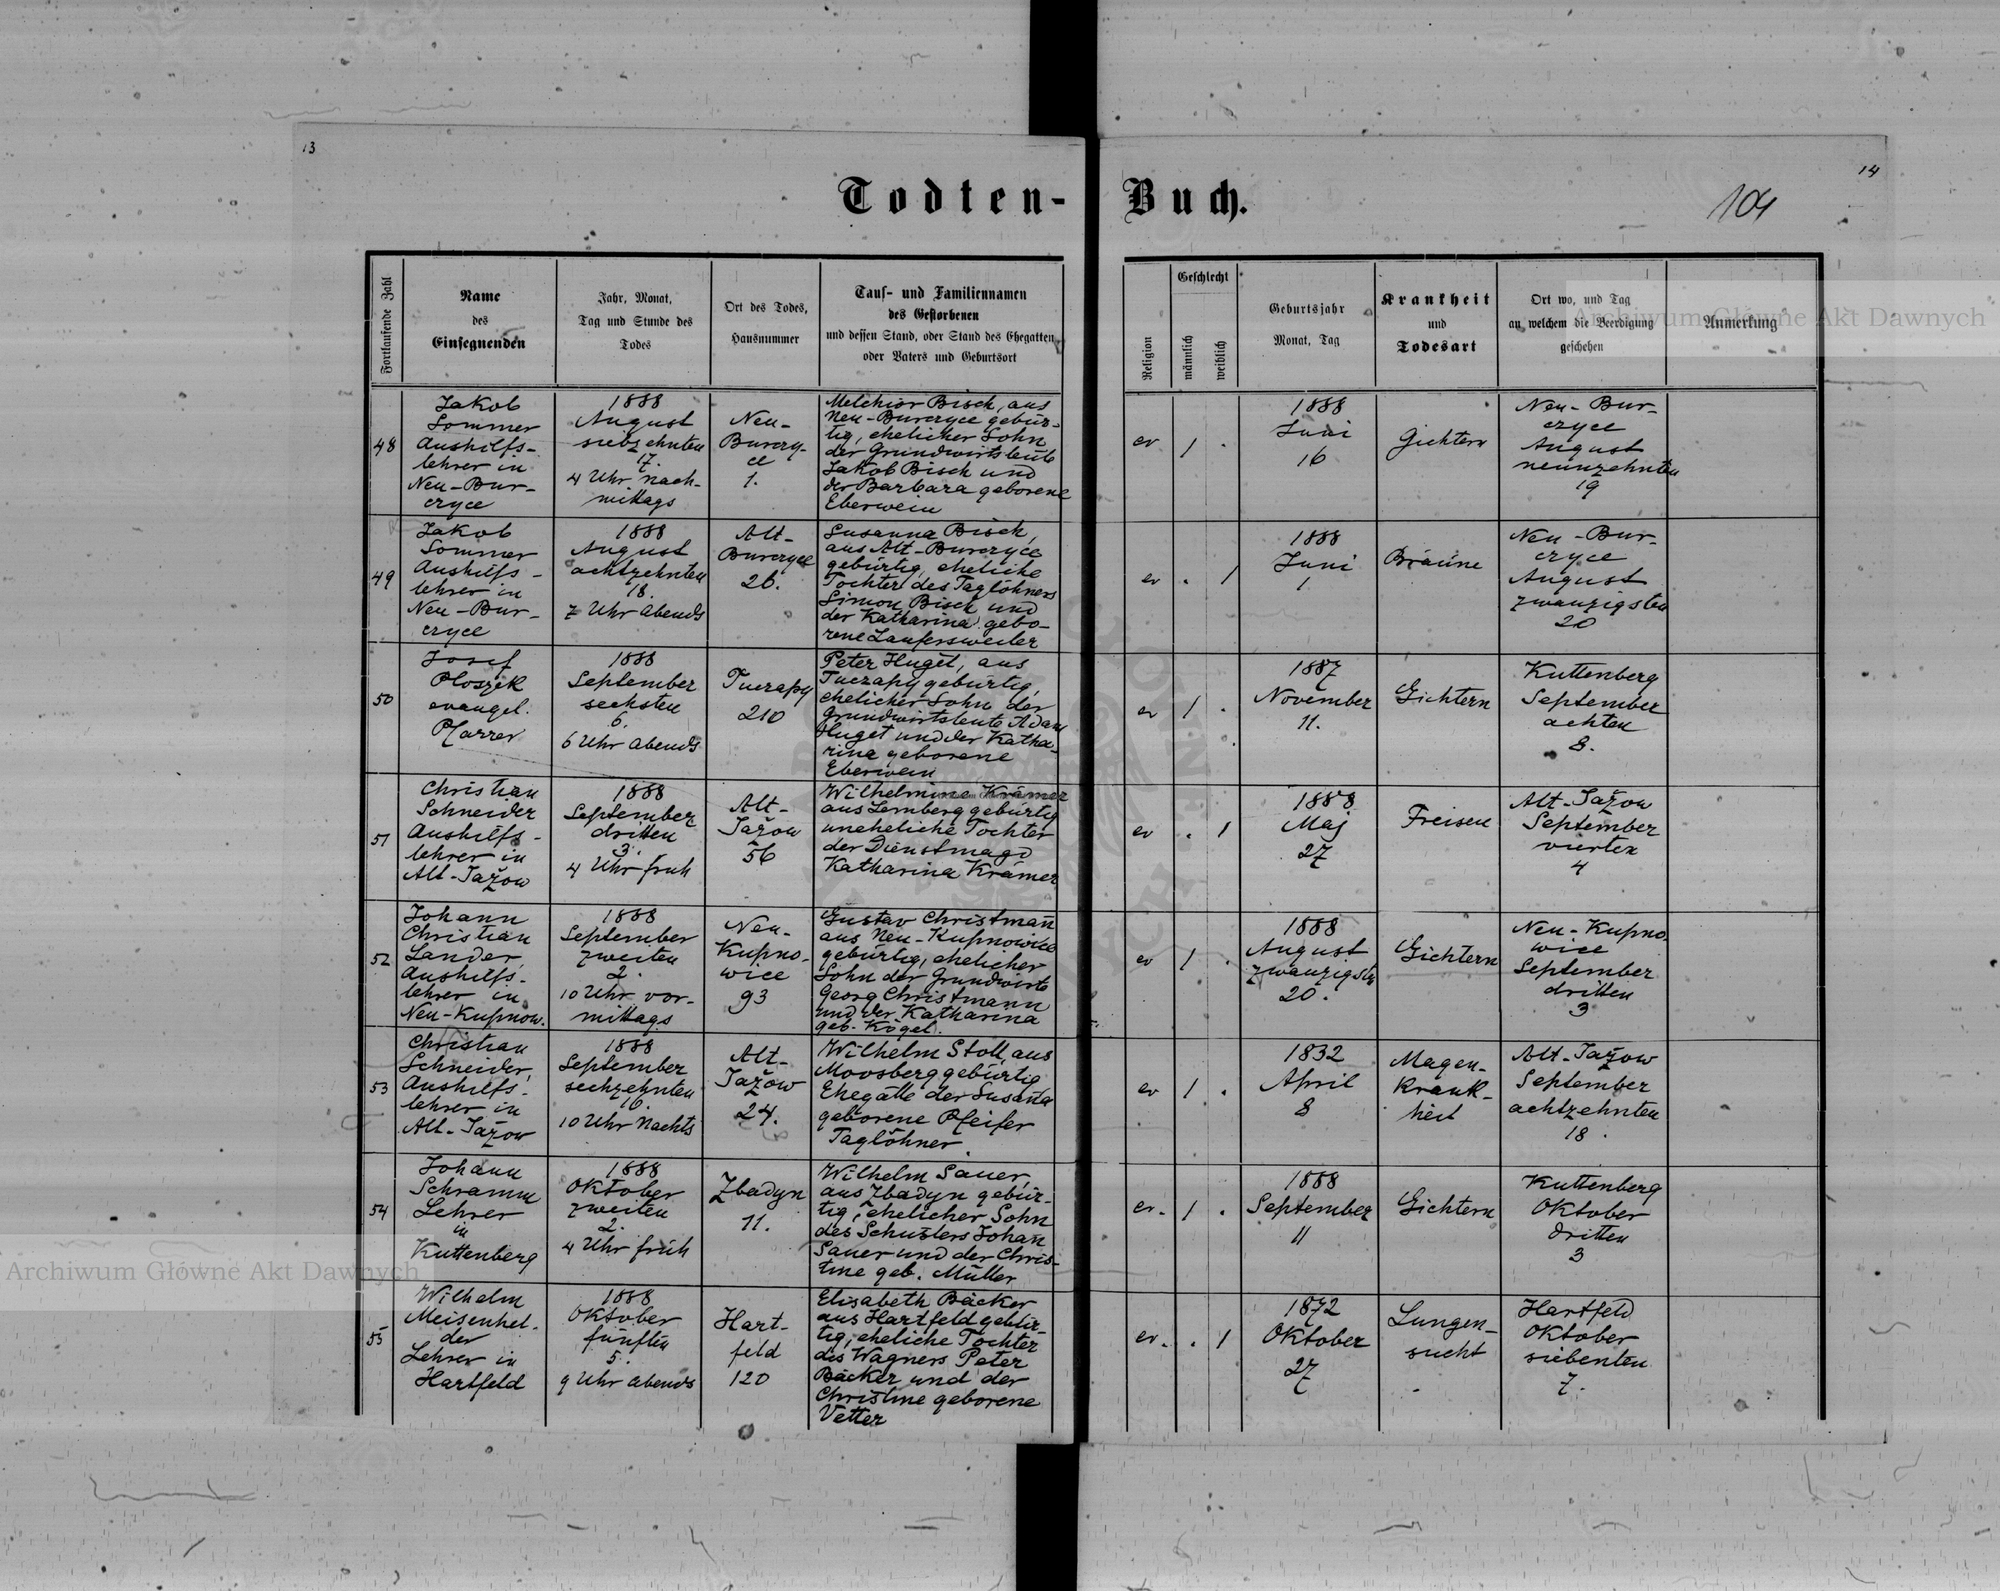 13
14
Todten-Buch.
104
Fortlaufende Zahl
Name
des
Einsegnenden
Jahr, Monat,
Tag und Stunde des
Todes
Ort des Todes,
Hausnummer
Tauf- und Familiennamen
des Gestorbenen
und dessen Stand, oder Stand des Ehegatten
oder Vaters und Geburtsort
Religion
Geschlecht
männlich
weiblich
Geburtsjahr
Monat, Tag
Krankheit
und
Todesart
Ort wo, und Tag
an welchem die Beerdigung
geschehen
Anmerkung
Archiwum Główne Akt Dawnych
48
Jakob
Sommer
Aushilfs-
lehrer in
Neu-Bur-
czyce
1888
August
siebzehnten
17.
4 Uhr nach-
mittags
Neu-
Burczy-
ce
1.
Melchior Bisch, aus
Neu-Burczyce gebür-
tig, ehelicher Sohn
der Grundwirtsleute
Jakob Bisch und
der Barbara geborene
Eberwein
ev
1
.
1888
Juni
16
Gichtern
Neu-Bur-
czyce
August
neunzehnten
19
49
Jakob
Sommer
Aushilfs-
lehrer in
Neu-Bur-
czyce
1888
August
achtzehnten
18.
7 Uhr abends
Alt-
Burczyce
26.
Susanna Bisch,
aus Alt-Burczyce
gebürtig, eheliche
Tochter des Taglöhners
Simon Bisch und
der Katharina gebo-
rene Laufersweiler
ev
.
1
1888
Juni
1
Bräune
Neu-Bur-
czyce
August
zwanzigsten
20
50
Josef
Ploszek
evangel.
Pfarrer
1888
September
sechsten
6.
6 Uhr abends
Tuczapy
210
Peter Huget, aus
Tuczapy gebürtig,
ehelicher Sohn der
Grundwirtsleute Adam
Huget und der Katha-
rina geborene
Eberwein
ev
1
.
1887
November
11.
Gichtern
Kuttenberg
September
achten
8.
51
Christian
Schneider
Aushilfs-
lehrer in
Alt-Jażow
1888
September
dritten
3.
4 Uhr früh
Alt-
Jażow
56
Wilhelmine Krämer
aus Lemberg gebürtig
uneheliche Tochter
der Dienstmagd
Katharina Krämer
ev
.
1
1888
Maj
27
Freisen
Alt-Jażow
September
vierten
4
52
Johann
Christian
Lander,
Aushilfs-
lehrer in
Neu-Kupnow.
1888
September
zweiten
2.
10 Uhr vor-
mittags
Neu-
Kupno-
wice
93
Gustav Christmañ
aus Neu-Kupnowice
gebürtig, ehelicher
Sohn der Grundwirte
Georg Christmann
und der Katharina
geb. Kogel.
ev
1
.
1888
August
zwanzigsten
20.
Gichtern
Neu-Kupno-
wice
September
dritten
3
53
Christian
Schneider,
Aushilfs-
lehrer in
Alt-Jażow
1888
September
sechzehnten
16.
10 Uhr Nachts
Alt-
Jażow
24.
Wilhelm Stoll, aus
Moosberg gebürtig,
Ehegatte der Susaña
geborene Pfeifer
Taglöhner.
ev
1
.
1832
April
8
Magen-
krank-
heit
Alt-Jażow
September
achtzehnten
18.
54
Johann
Schramm
Lehrer
in
Kuttenberg
1888
Oktober
zweiten
2.
4 Uhr früh
Zbadyn
11.
Wilhelm Sauer,
aus Zbadyn gebür-
tig, ehelicher Sohn
des Schusters Johañ
Sauer und der Chris-
tine geb. Müller
ev.
1
.
1888
September
11
Gichtern
Kuttenberg
Oktober
dritten
3
Archiwum Główne Akt Dawnych
55
Wilhelm
Meisenhel-
der
Lehrer in
Hartfeld
1888
Oktober
fünften
5.
9 Uhr abends
Hart-
feld
120
Elisabeth Bäcker
aus Hartfeld gebür-
tig, eheliche Tochter
des Wagners Peter
Bäcker und der
Christine geborene
Vetter
ev.
.
1
1872
Oktober
27
Lungen-
sucht
Hartfeld
Oktober
siebenten
7.